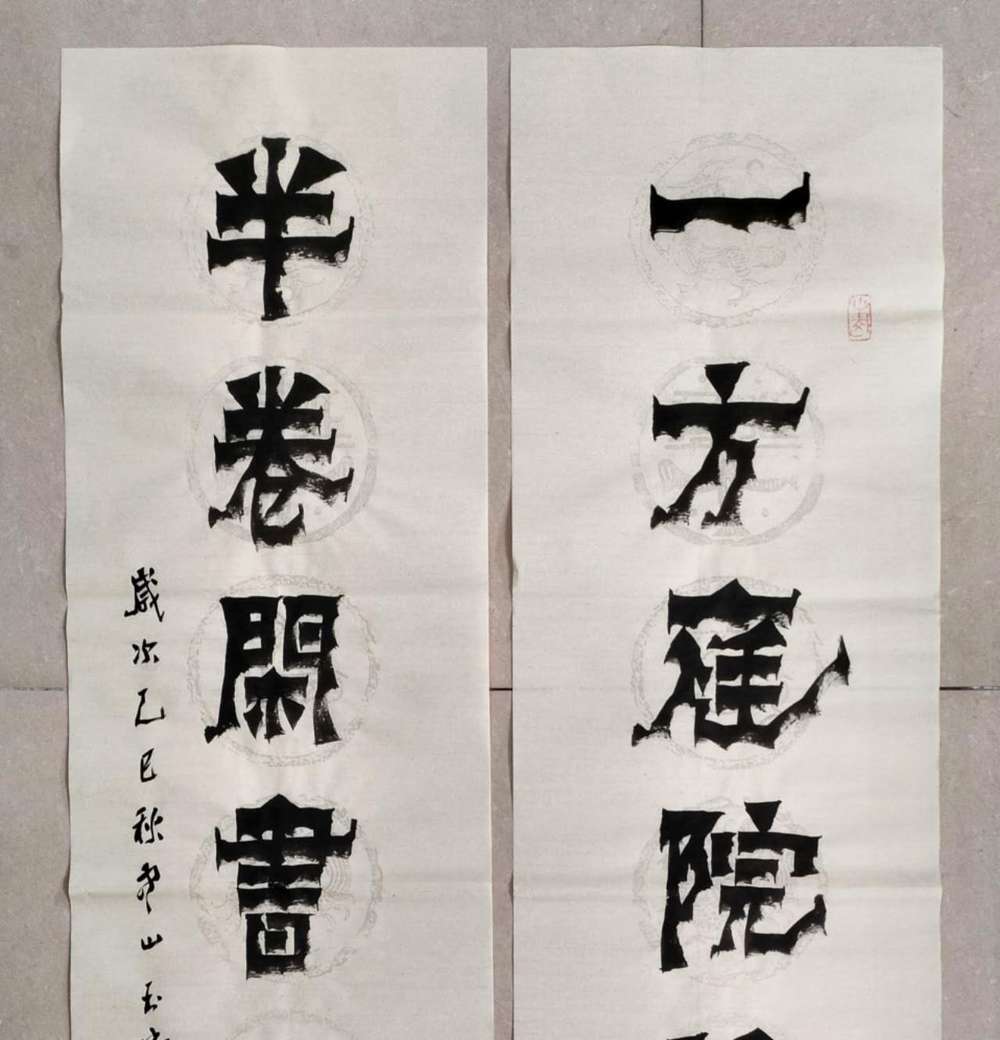 一方庭院
半卷閑書
歲次乙巳秋山玉